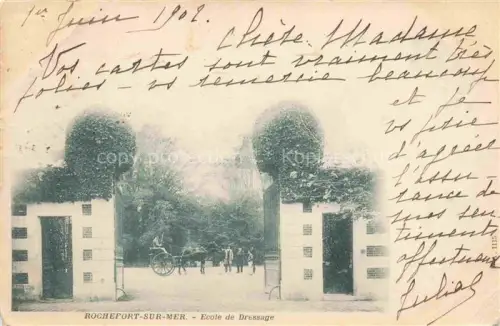 1er Juin 1902.
Chère Madame
Vos cartes sont vraiment très
jolies - vs remercie beaucoup
et je
vs prie
d'agréer
l'assu
rance de
mes sen
timents
affectueux
Juliab
copyright
ROCHEFORT-SUR-MER. - Ecole de Dressage